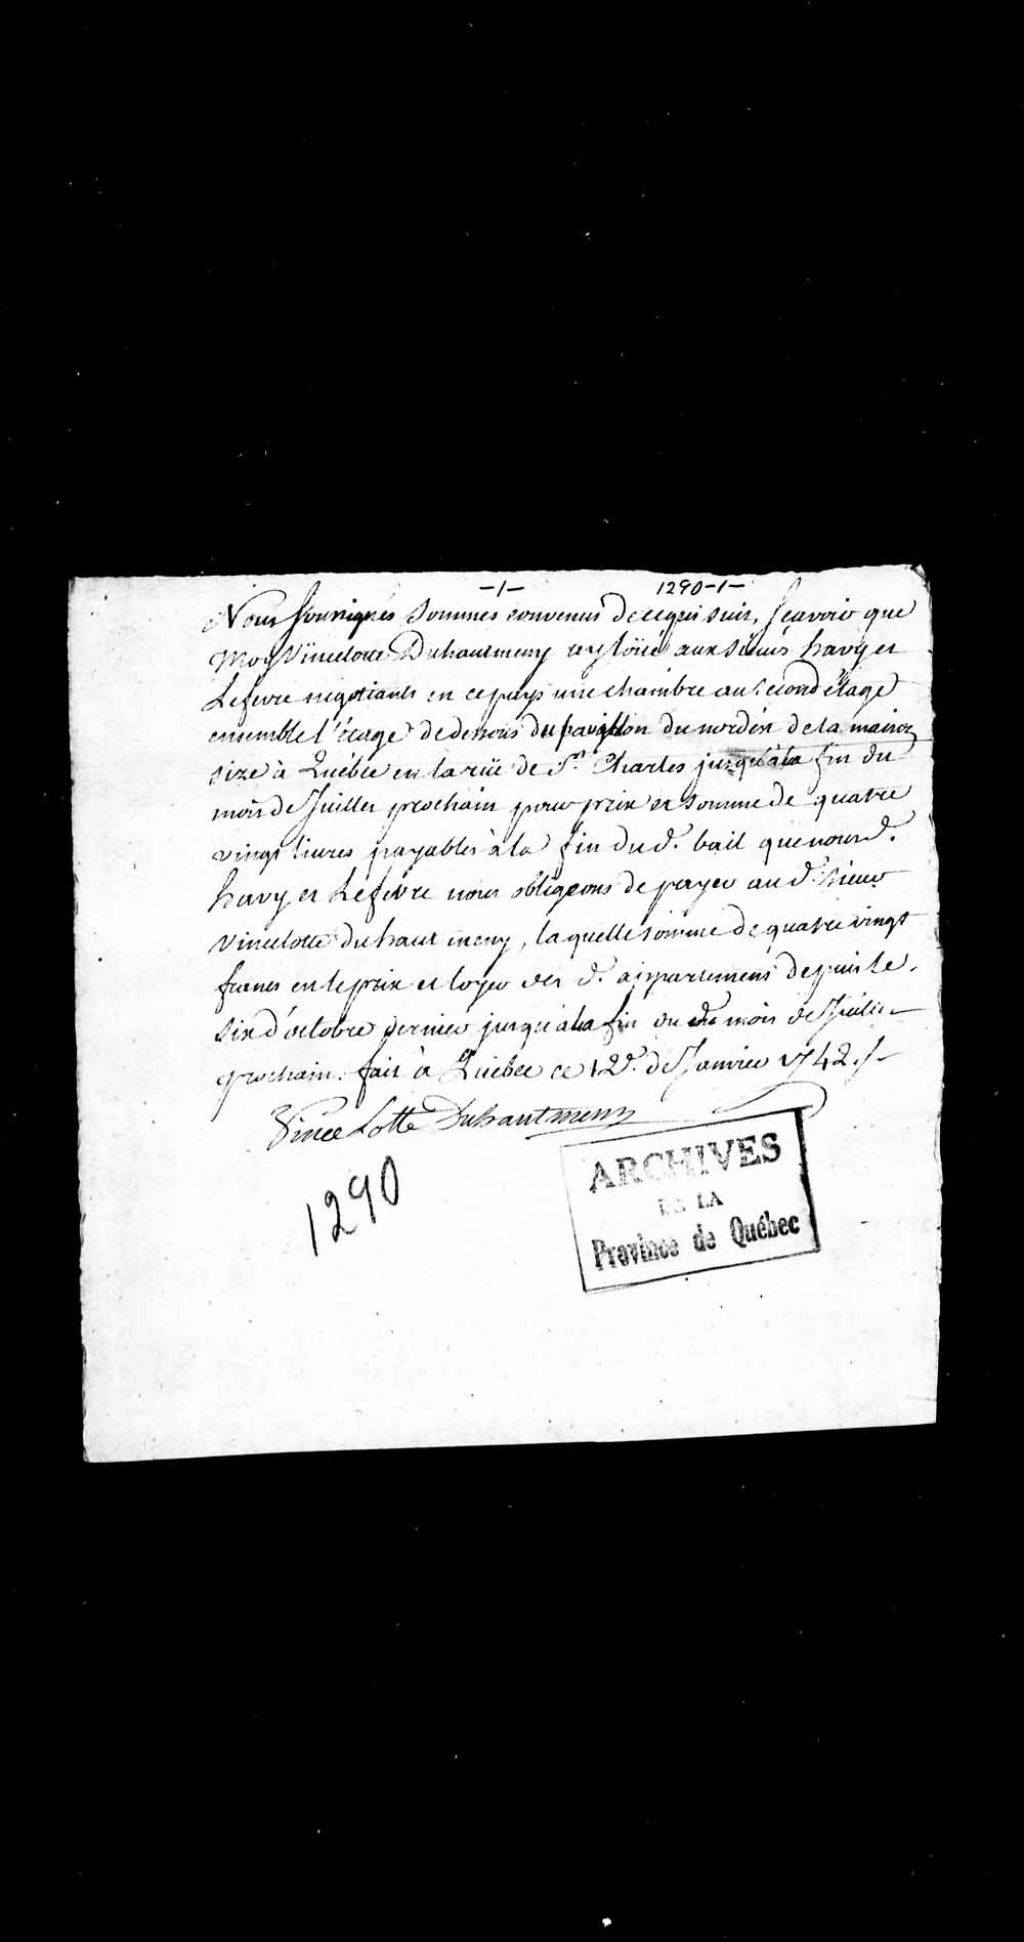 -1- 1290-1-
Nous soussignés sommes convenus de ce qui suit, sçavoir que
moy Vincelotte Duhautmeny ay loüé aux sieurs havy et
Lefevre negotiants en ce pays une chambre au second étage
ensemble l'étage de dessous du pavillon du nordest de la maison
size à Québec en la rüe de St. Charles jusqu'à la fin du
mois de Juillet prochain pour prix et somme de quatre
vingt livres payables à la fin du d. bail que nous d.
havy et Lefevre nous obligeons de payer au d. sieur
Vincelotte duhaut meny, laquelle somme de quatre vingt
francs est le prix et loyer des d. appartemens depuis le
six d'octobre dernier jusqu'à la fin du mois de Juillet
prochain. fait à Québec ce 12e. de Janvier 1742./-
Vince Lotte Duhautmeny
1290
ARCHIVES
DE LA
Province de Québec